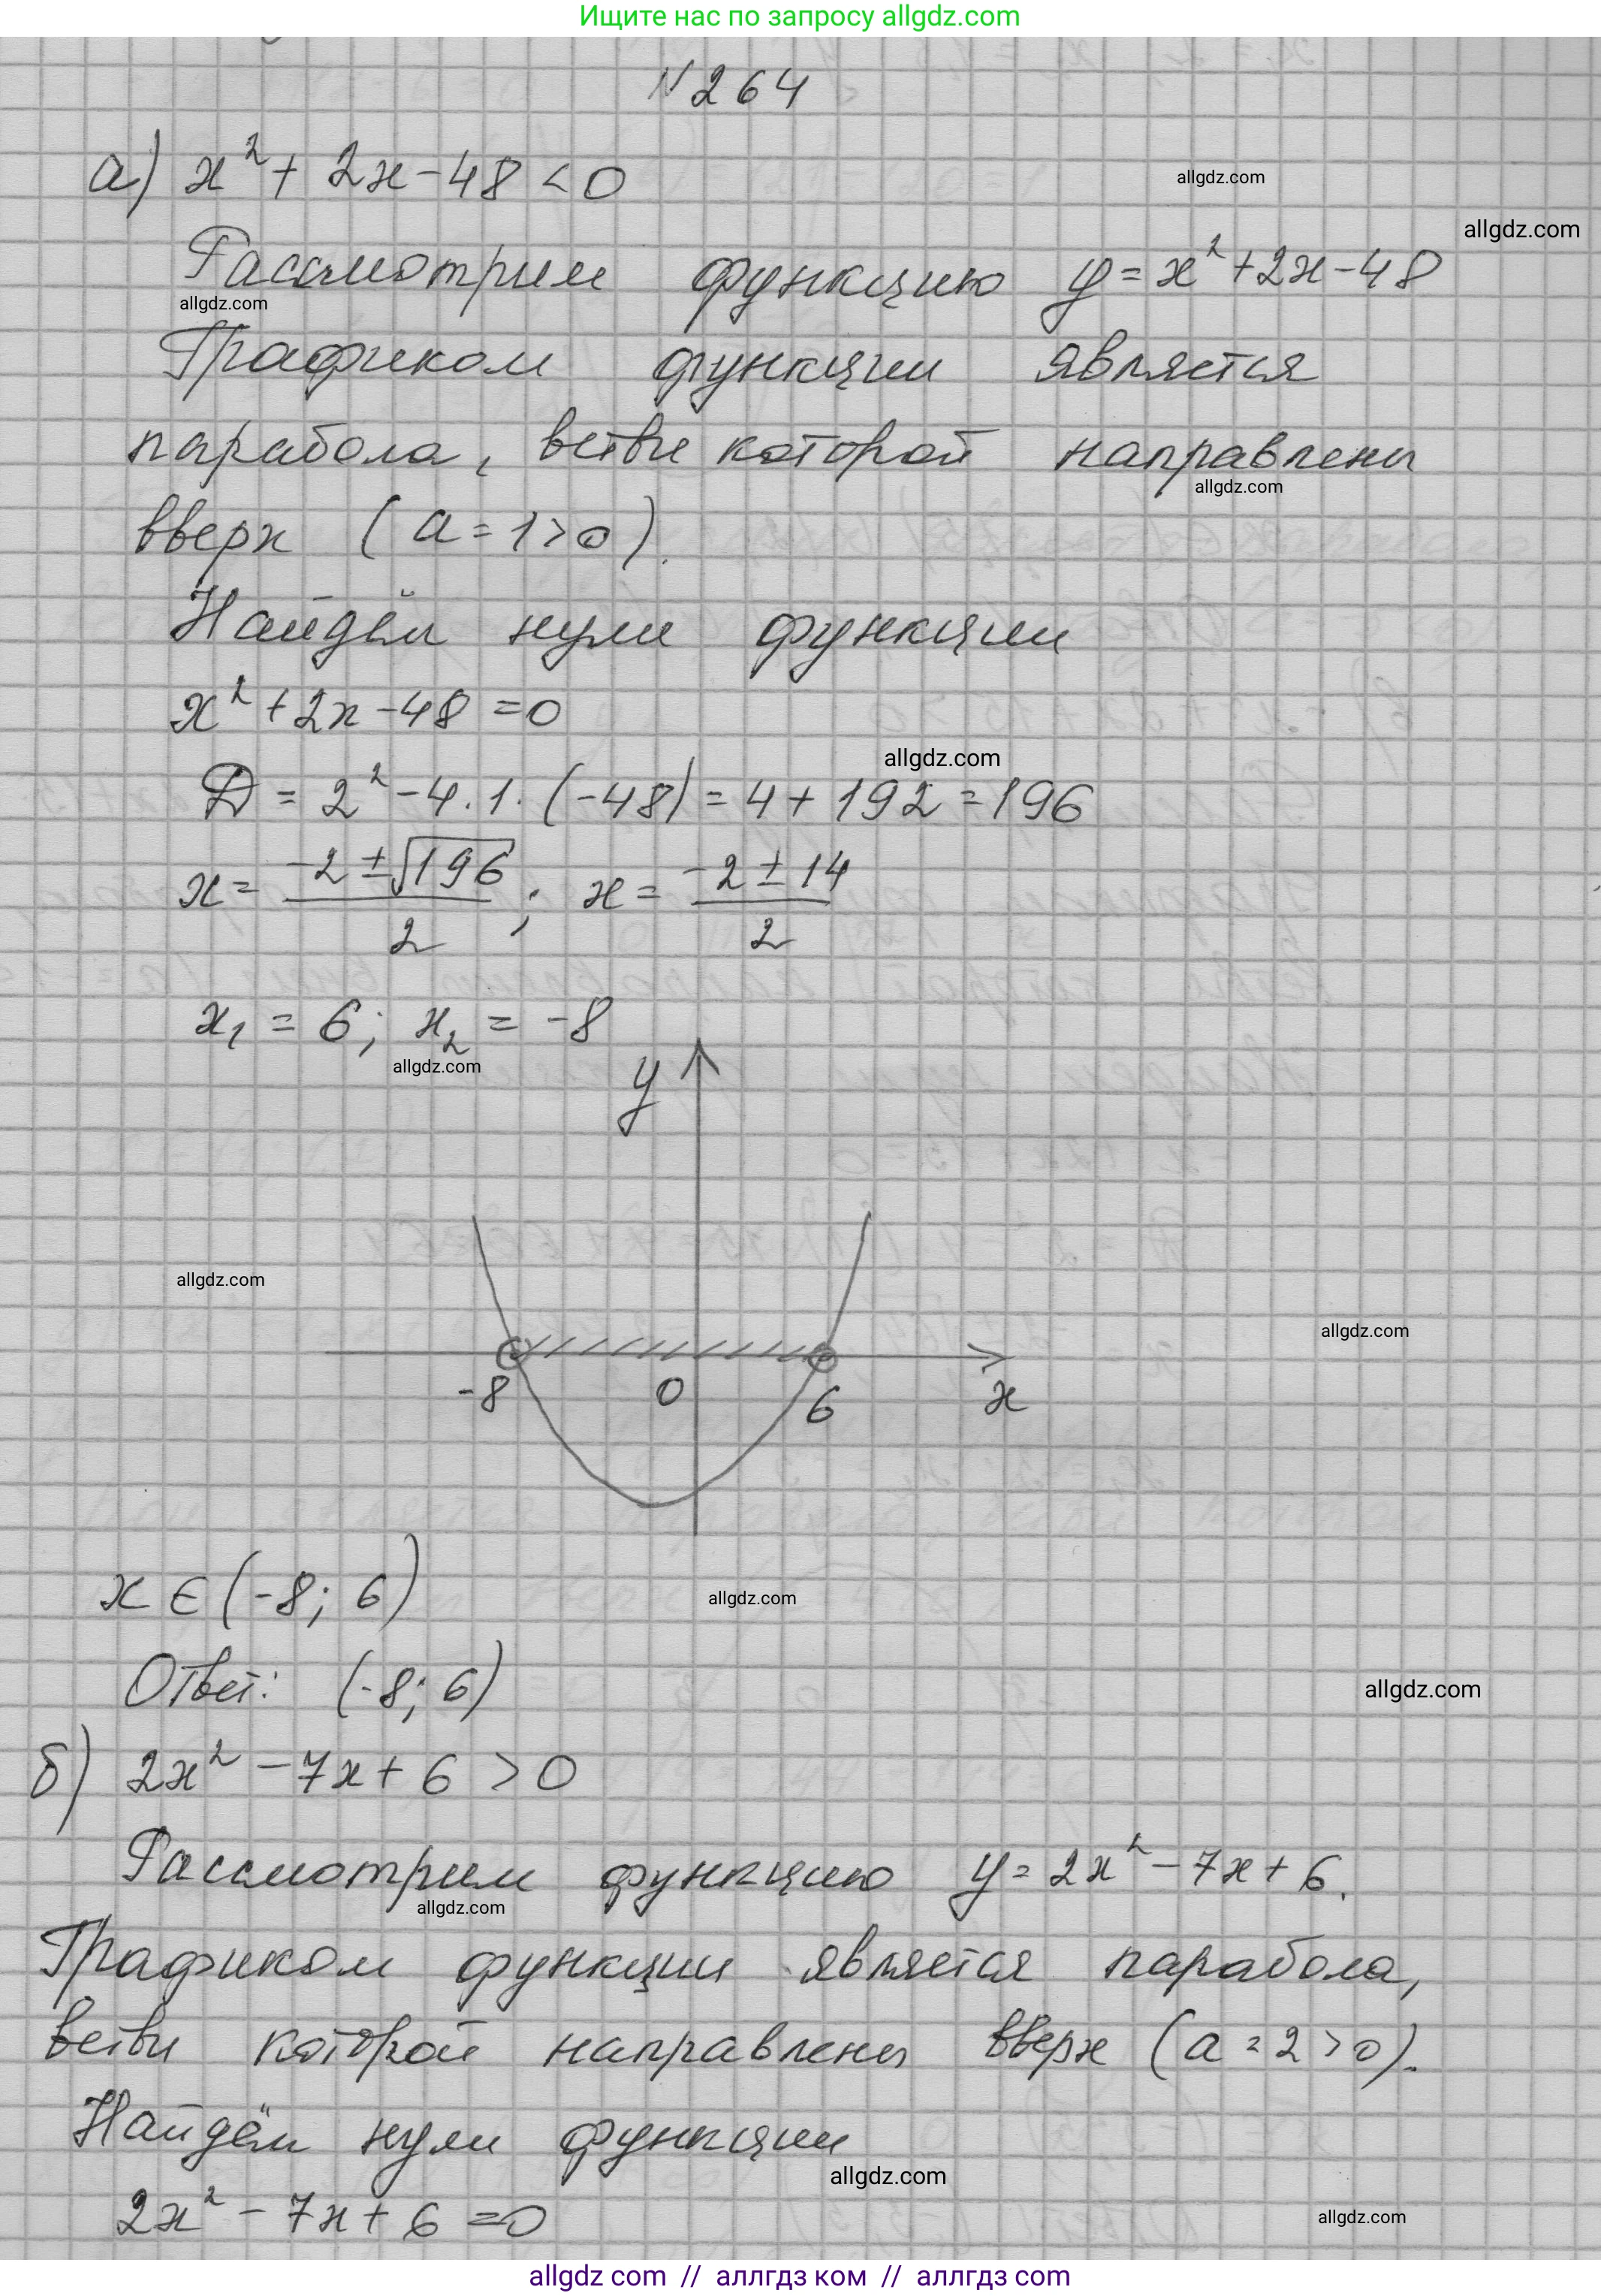 Ищите нас по запросу allgdz.com
N264
а) x² + 2x - 48 < 0
allgdz.com
allgdz.com
Рассмотрим функцию y = x² + 2x - 48
allgdz.com
Графиком функции является
парабола, ветви которой направлены
allgdz.com
вверх (a = 1 > 0).
Найдём нули функции
x² + 2x - 48 = 0
allgdz.com
D = 2² - 4 · 1 · (-48) = 4 + 192 = 196
x = (-2 ± √196)/2 ; x = (-2 ± 14)/2
x₁ = 6; x₂ = -8
allgdz.com
y
allgdz.com
allgdz.com
-8 0 6 x
x ∈ (-8; 6)
allgdz.com
Ответ: (-8; 6)
allgdz.com
б) 2x² - 7x + 6 > 0
Рассмотрим функцию y = 2x² - 7x + 6.
allgdz.com
Графиком функции является парабола,
ветви которой направлены вверх (a = 2 > 0).
Найдём нули функции
allgdz.com
2x² - 7x + 6 = 0
allgdz.com
allgdz com // аллгдз ком // аллгдз com